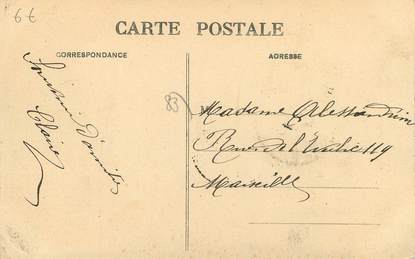 6€
CARTE POSTALE
CORRESPONDANCE
ADRESSE
83
Souvenir d'amitié
Claire
Madame Alessandrini
Rue de l'Evêché 119
Marseille